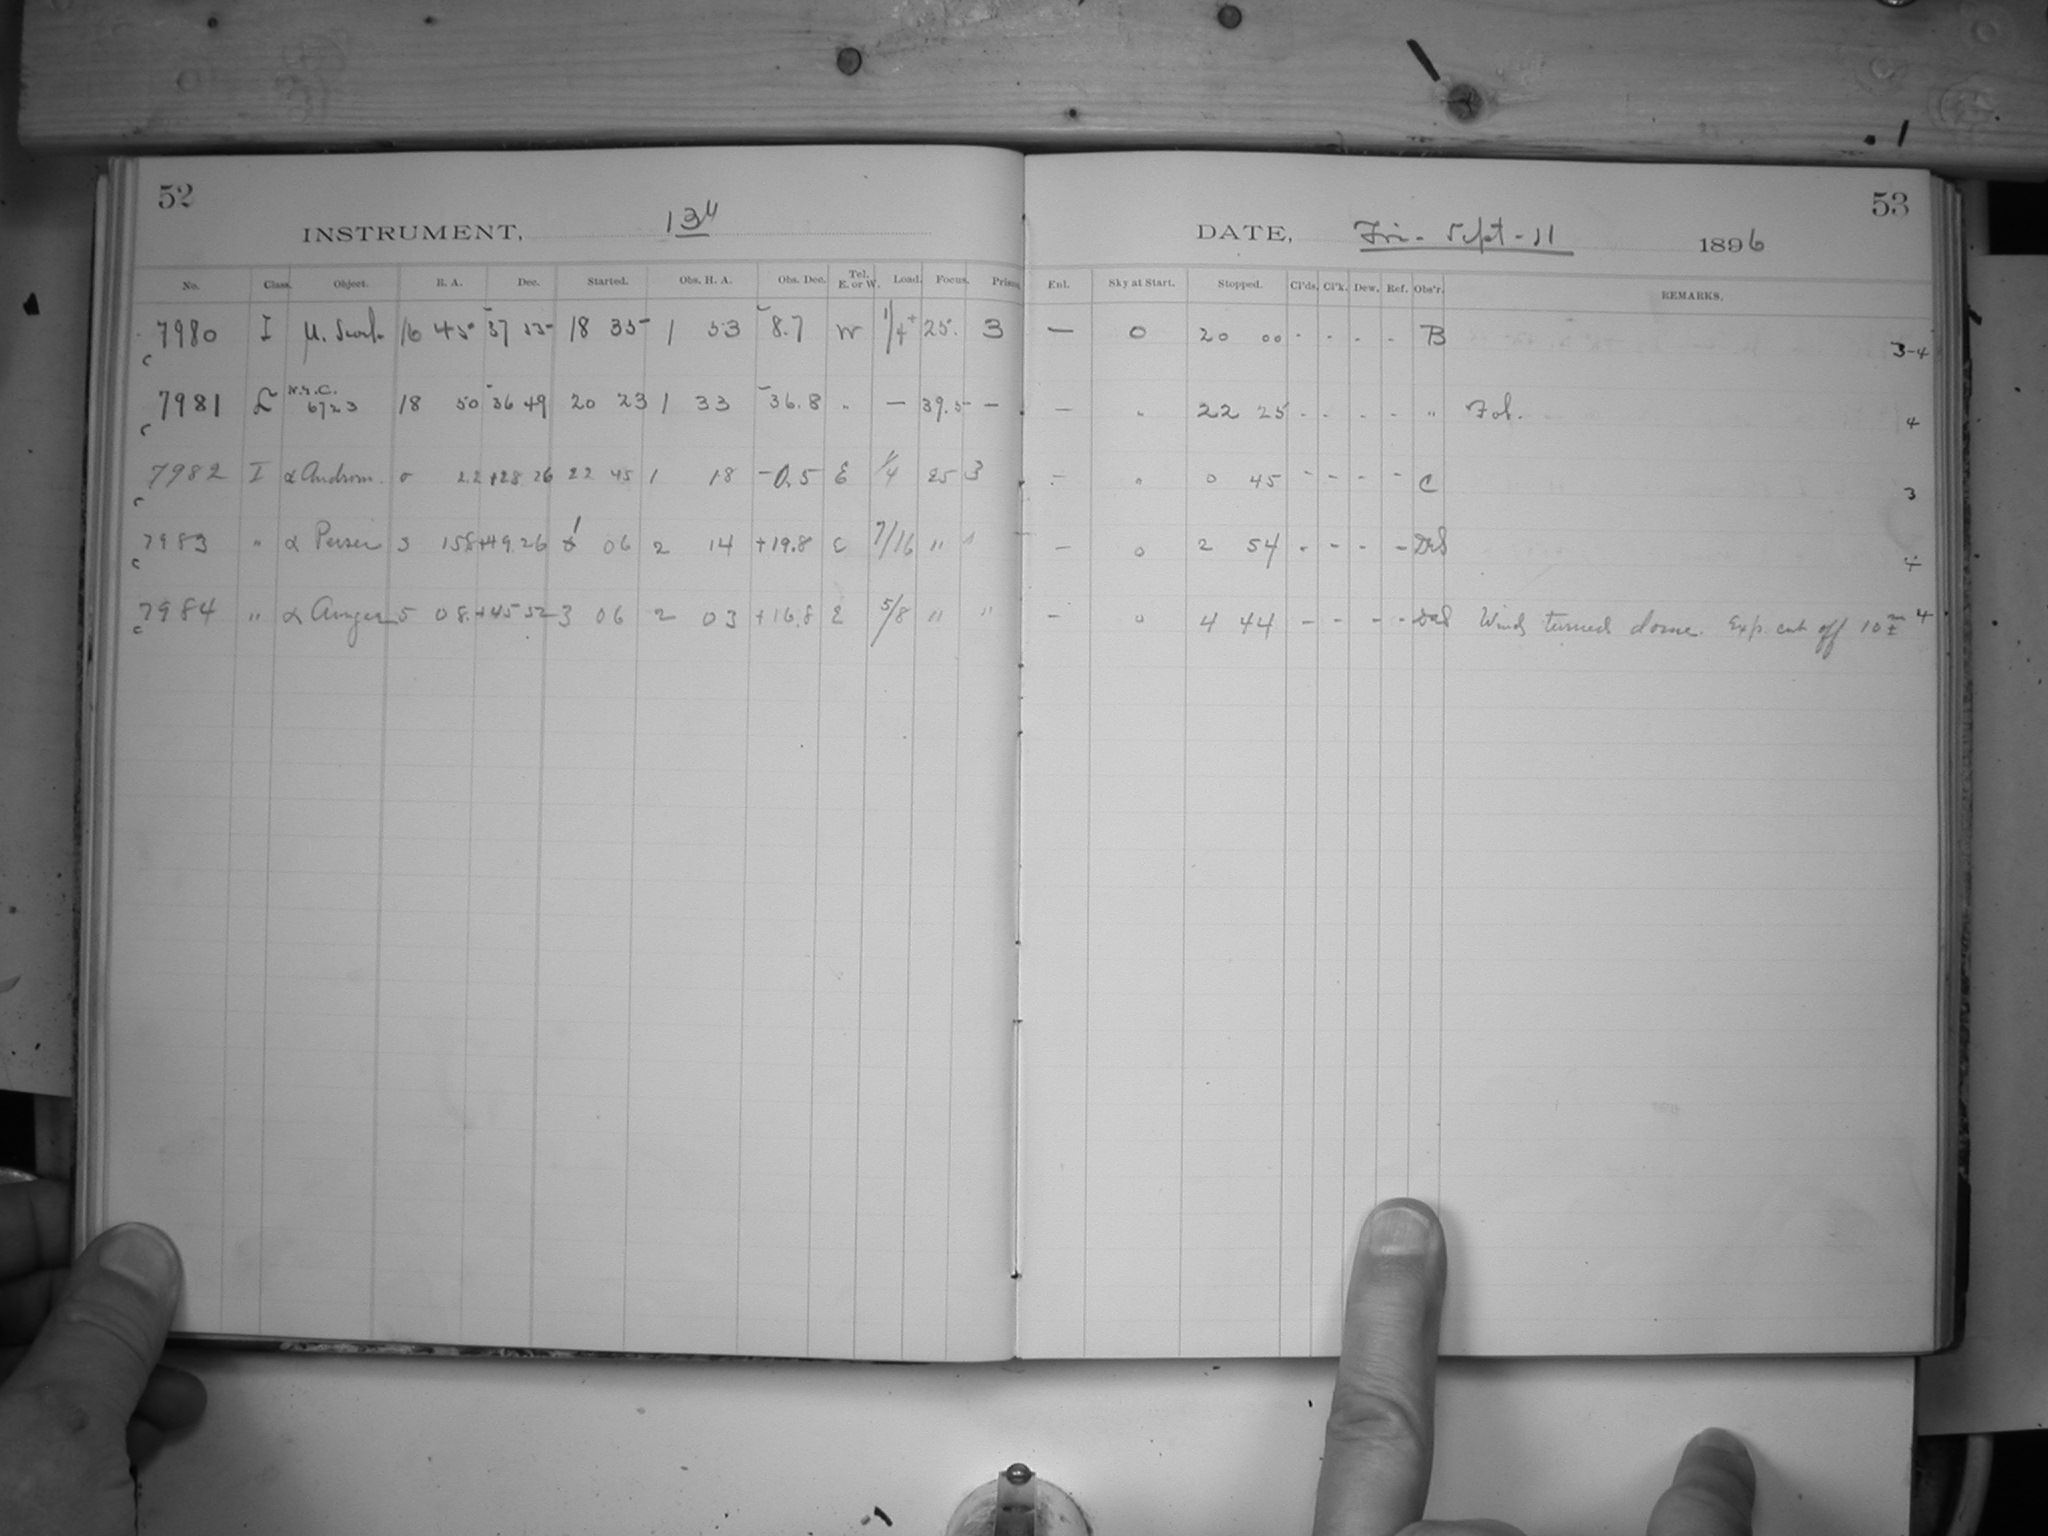 52
INSTRUMENT, 13"
No. Class. Object. R. A. Dec. Started. Obs. H. A. Obs. Dec. Tel. E. or W. Load. Focus. Prism.
7980 I μ. Scorp. 16 45 -37 53 18 35 1 53 -8.7 W 1/4+ 25. 3
7981 L N.G.C. 6723 18 50 -36 49 20 23 1 33 -36.8 " — 39.5 —
7982 I α Androm. 0 2.2 +28 26 22 45 1 18 -0.5 E 1/4 25 3
7983 " α Persei 3 15.8 +49.26 1 06 2 14 +19.8 E 7/16 " "
7984 " α Aurigae 5 08. +45 52 3 06 2 03 +16.8 E 5/8 " "
53
DATE, Fri- Sept-11 1896
Enl. Sky at Start. Stopped. Cl'ds. Cl'k. Dew. Ref. Obs'r. REMARKS.
— 0 20 00 - - - - B 3-4
— " 22 25 - - - - " 4
— " 0 45 - - - - C 3
— 0 2 54 - - - - 4
— 0 4 44 - - - - Wind turned dome. Exp. cut off 10m± 4